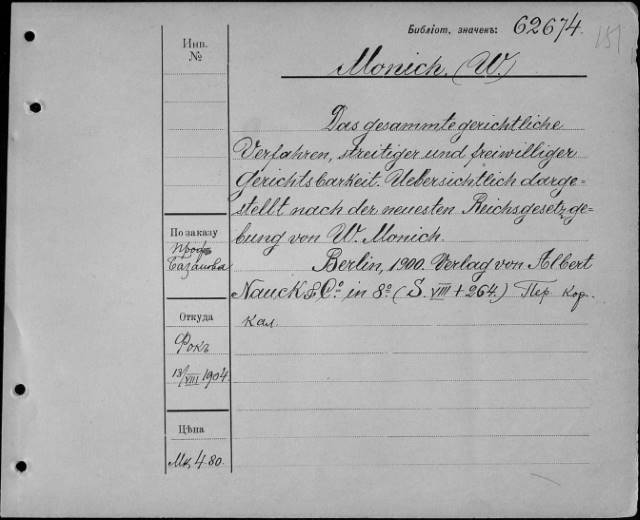 Библіот. значекъ: 62674. 151
Инв.
№
Monich. (W.)
Das gesammte gerichtliche
Verfahren, streitiger und freiwilliger
Gerichtsbarkeit. Uebersichtlich darge=
stellt nach der neuesten Reichsgesetzge=
bung von W. Monich.
Berlin, 1900. Verlag von Albert
Nauck & Cº. in 8º. (S. VIII + 264.) Пер. кор.
кал.
По заказу
проф.
Базанова
Откуда
Фокъ
13/VIII 1904.
Цѣна
Мк. 4.80.